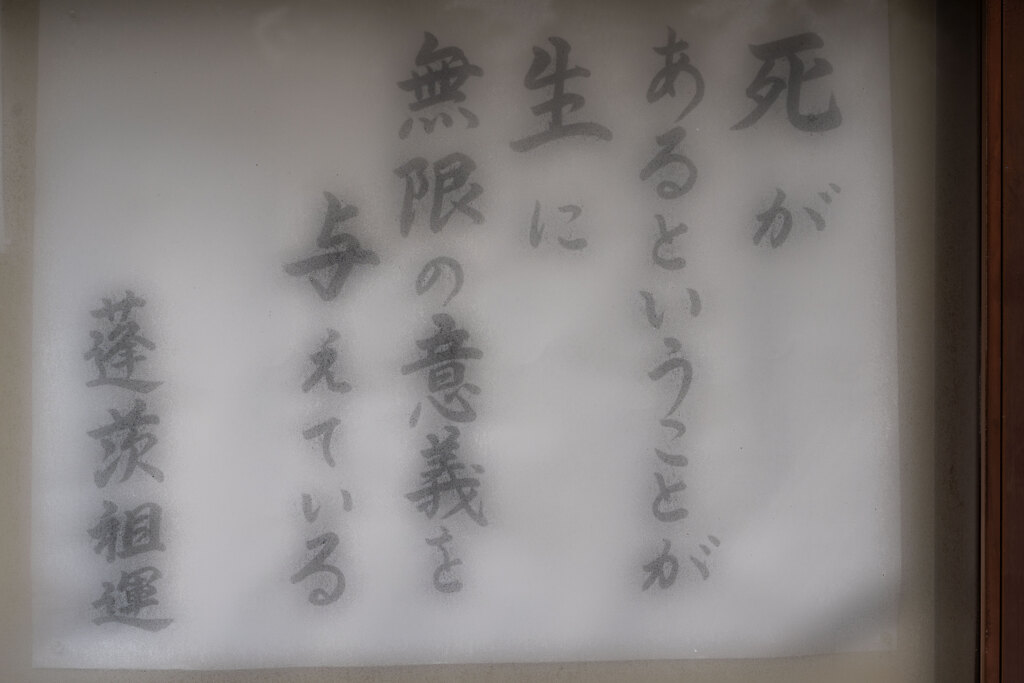 死が
あるということが
生に
無限の意義を
与えている
蓬茨祖運